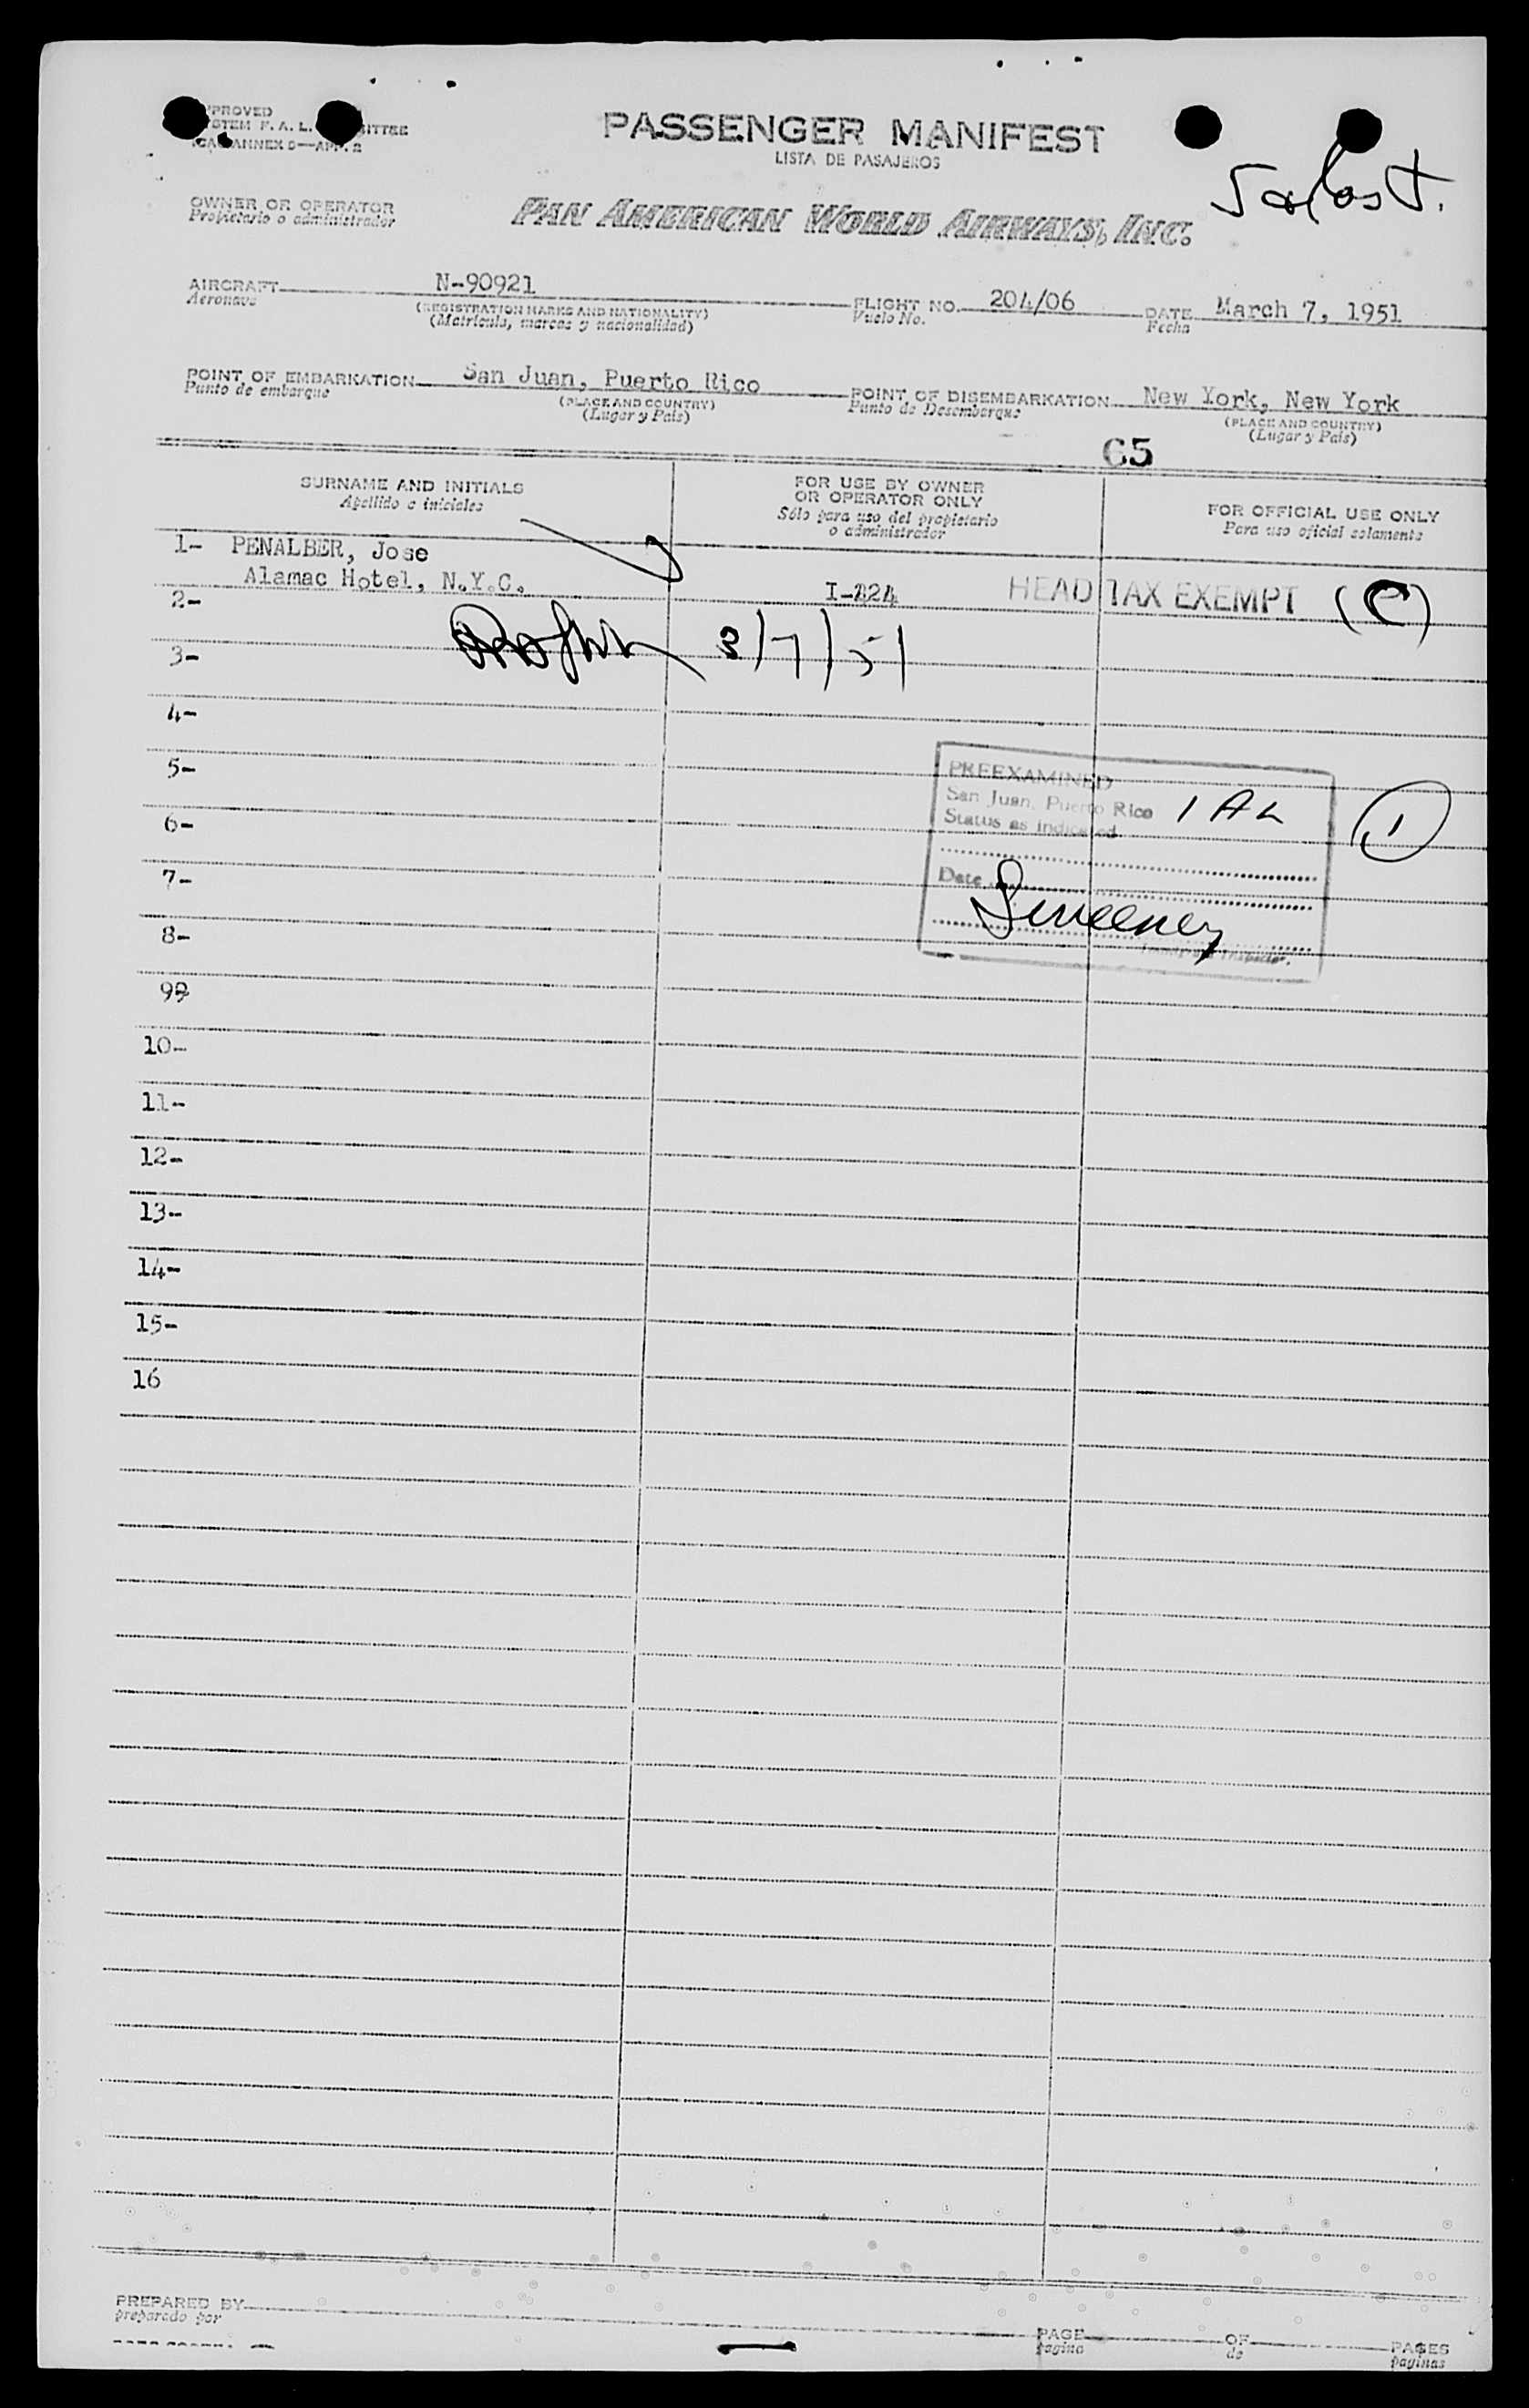 PASSENGER MANIFEST
LISTA DE PASAJEROS
ANNEX 9—APP. 2
OWNER OR OPERATOR
Propietario o administrador
PAN AMERICAN WORLD AIRWAYS, INC.
AIRCRAFT N-90921 FLIGHT NO. 204/06 DATE March 7, 1951
Aeronave (REGISTRATION MARKS AND NATIONALITY) Vuelo No. Fecha
(Matrícula, marcas y nacionalidad)
POINT OF EMBARKATION San Juan, Puerto Rico POINT OF DISEMBARKATION New York, New York
Punto de embarque (PLACE AND COUNTRY) Punto de Desembarque (PLACE AND COUNTRY)
(Lugar y País) (Lugar y País)
65
SURNAME AND INITIALS FOR USE BY OWNER OR OPERATOR ONLY FOR OFFICIAL USE ONLY
Apellido e iniciales Sólo para uso del propietario o administrador Para uso oficial solamente
1- PENALBER, Jose
Alamac Hotel, N.Y.C. HEAD TAX EXEMPT (C)
2-
3- 3/7/51
4-
5-
PREEXAMINED
San Juan, Puerto Rico 1 AL 1
Status as indicated
6-
7-
Date
Sweeney
Immigrant Inspector.
8-
99
10-
11-
12-
13-
14-
15-
16
PREPARED BY
preparado por
PAGE OF PAGES
página de páginas